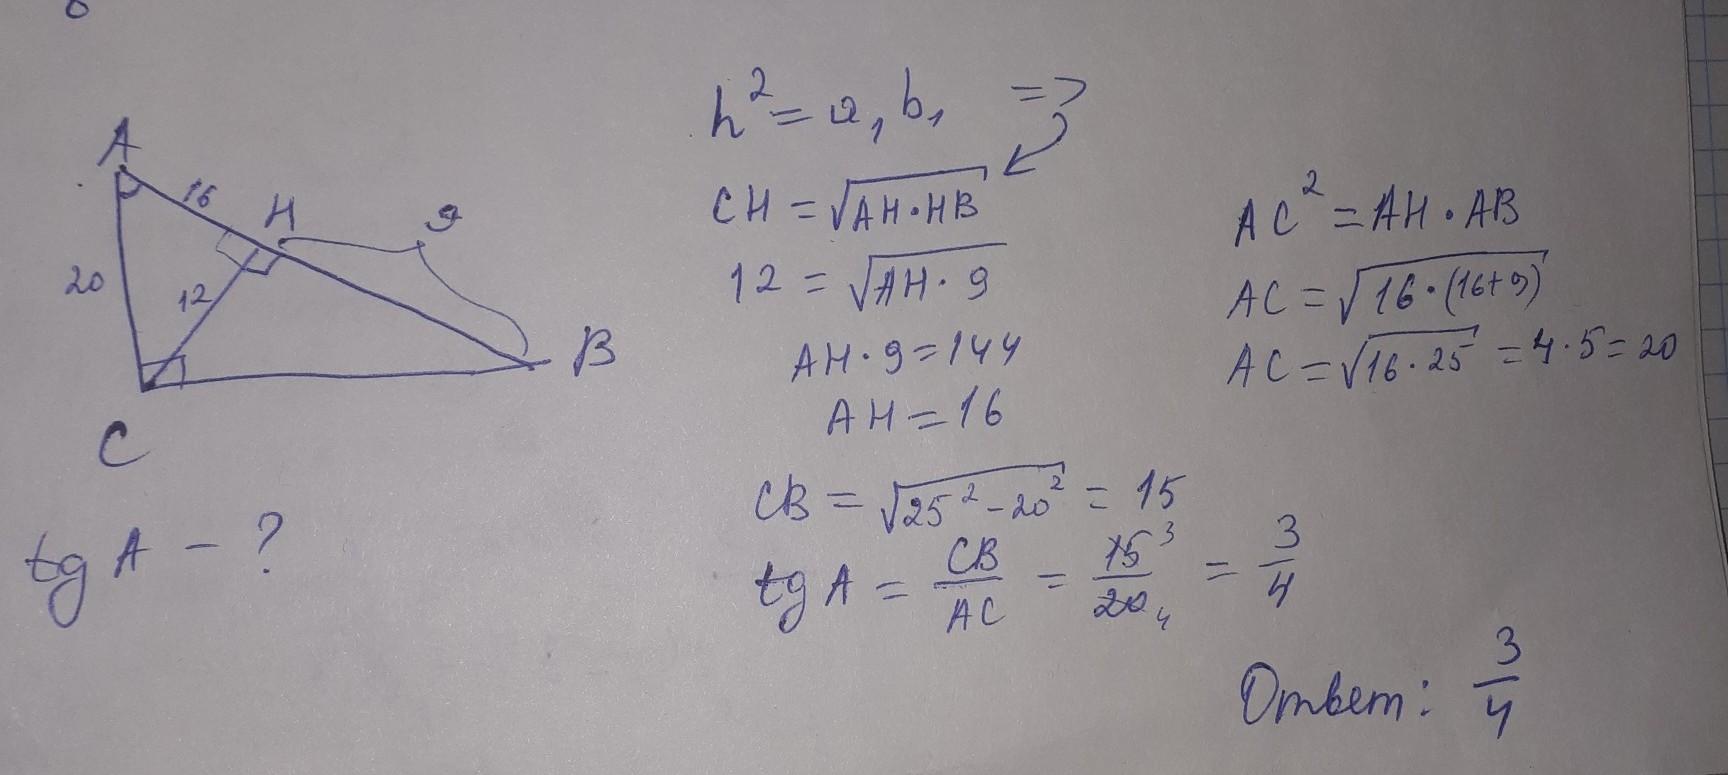 A
16
H
9
20
12
B
C
tg A - ?
h² = a₁ b₁ =>
CH = √AH·HB
12 = √AH·9
AH·9=144
AH = 16
AC² = AH·AB
AC = √16·(16+9)
AC = √16·25 = 4·5=20
CB = √25²-20² = 15
tg A = CB/AC = 15³/20₄ = 3/4
Ответ: 3/4